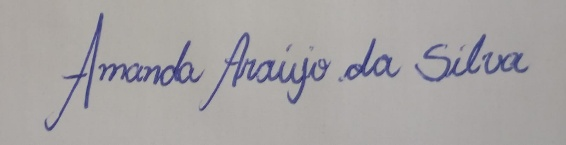 Amanda Araújo da Silva